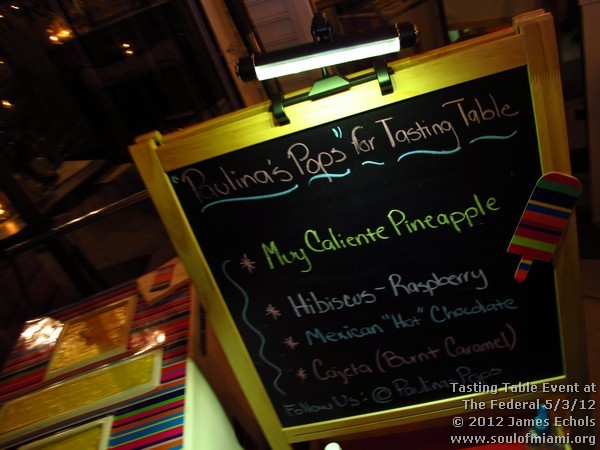 "Paulina's Pops" for Tasting Table
* Muy Caliente Pineapple
* Hibiscus-Raspberry
* Mexican "Hot" Chocolate
* Cajeta (Burnt Caramel)
Follow Us: @PaulinasPops
Tasting Table Event at
The Federal 5/3/12
© 2012 James Echols
www.soulofmiami.org